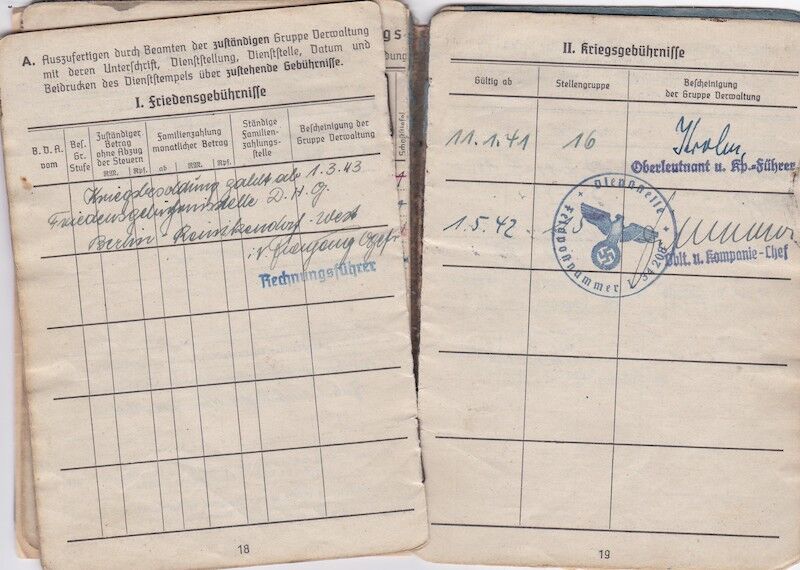 A. Auszufertigen durch Beamten der zuständigen Gruppe Verwaltung
mit deren Unterschrift, Dienststellung, Dienststelle, Datum und
Beidrucken des Dienststempels über zustehende Gebührnisse.
I. Friedensgebührnisse
B. D. A. vom
Bes. Gr. Stufe
Zuständiger Betrag ohne Abzug der Steuern
RM. Rpf.
Familienzahlung monatlicher Betrag
ab RM. Rpf.
Ständige Familien-zahlungs-stelle
Bescheinigung der Gruppe Verwaltung
Kriegsbesoldung zahlt ab 1.3.43
Friedensgebührnisstelle D.H.G.
Berlin - Reinickendorf - West
i.V.
Rechnungsführer
18
II. Kriegsgebührnisse
Gültig ab
Stellengruppe
Bescheinigung
der Gruppe Verwaltung
11.1.41 16
Oberleutnant u. Kp.-Führer
1.5.42
Oblt. u. Kompanie-Chef
Dienststelle
Feldpostnummer
19